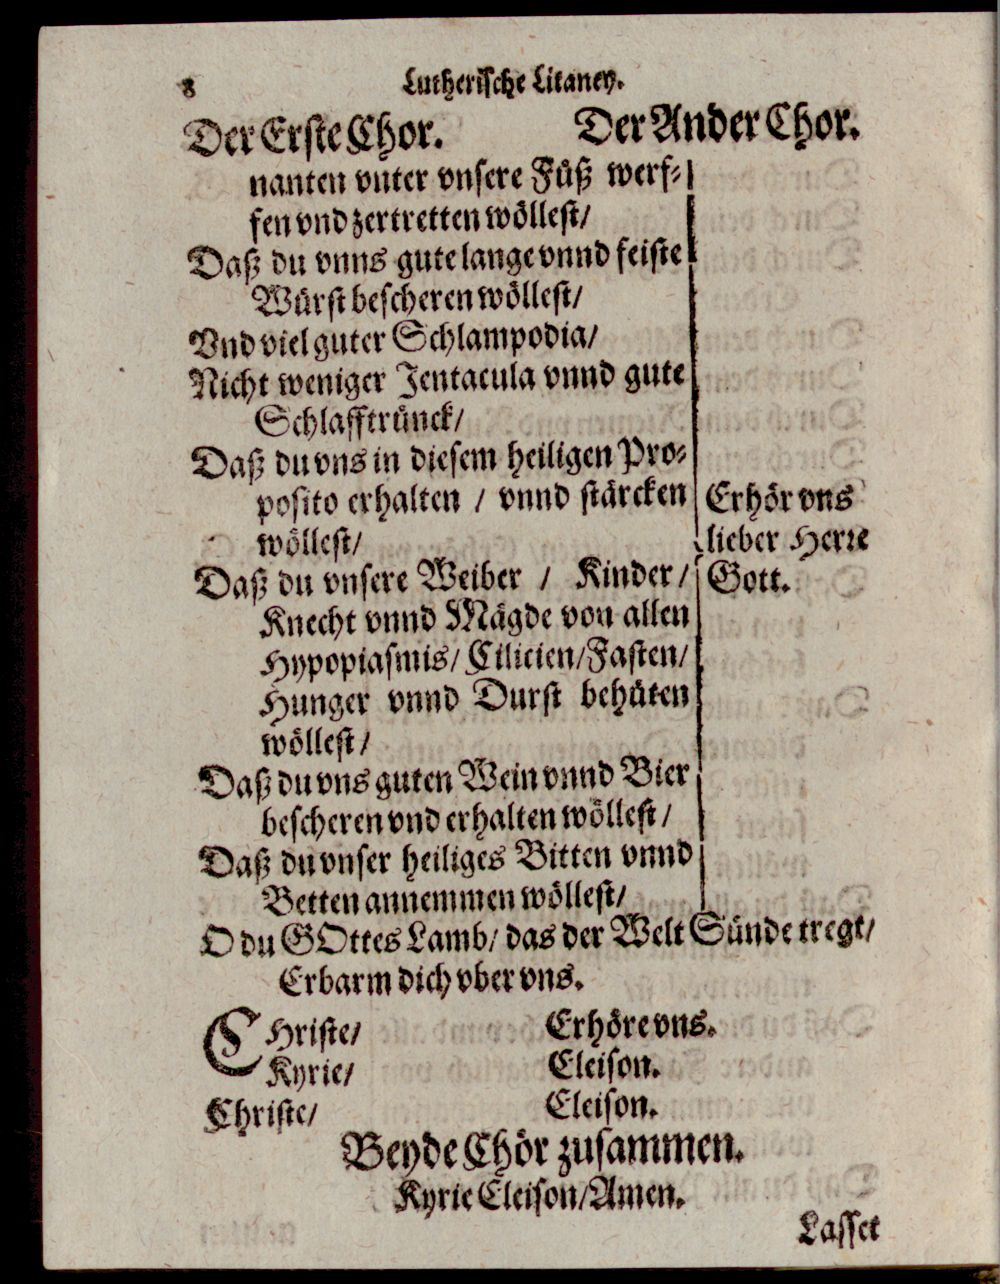 8 Lutherische Litaney.
Der Erste Chor. Der Ander Chor.
nanten vnter vnsere Füß werf-
fen vnd zertretten wöllest/
Daß du vnns gute lange vnnd feiste
Würst bescheren wöllest/
Vnd viel guter Schlampodia/
Nicht weniger Jentacula vnnd gute
Schlafftrünck/
Daß du vns in diesem heiligen Pro-
posito erhalten / vnnd stärcken
wöllest/
Daß du vnsere Weiber / Kinder/
Knecht vnnd Mägde von allen
Hypopiasmis/ Cilicien/Fasten/
Hunger vnnd Durst behüten
wöllest/
Daß du vns guten Wein vnnd Bier
bescheren vnd erhalten wöllest/
Daß du vnser heiliges Bitten vnnd
Betten annemmen wöllest/
Erhör vns
lieber Herre
Gott.
O du GOttes Lamb/ das der Welt Sünde tregt/
Erbarm dich vber vns.
CHriste/ Erhöre vns.
Kyrie/ Eleison.
Christe/ Eleison.
Beyde Chör zusammen.
Kyrie Eleison/Amen.
Lasset